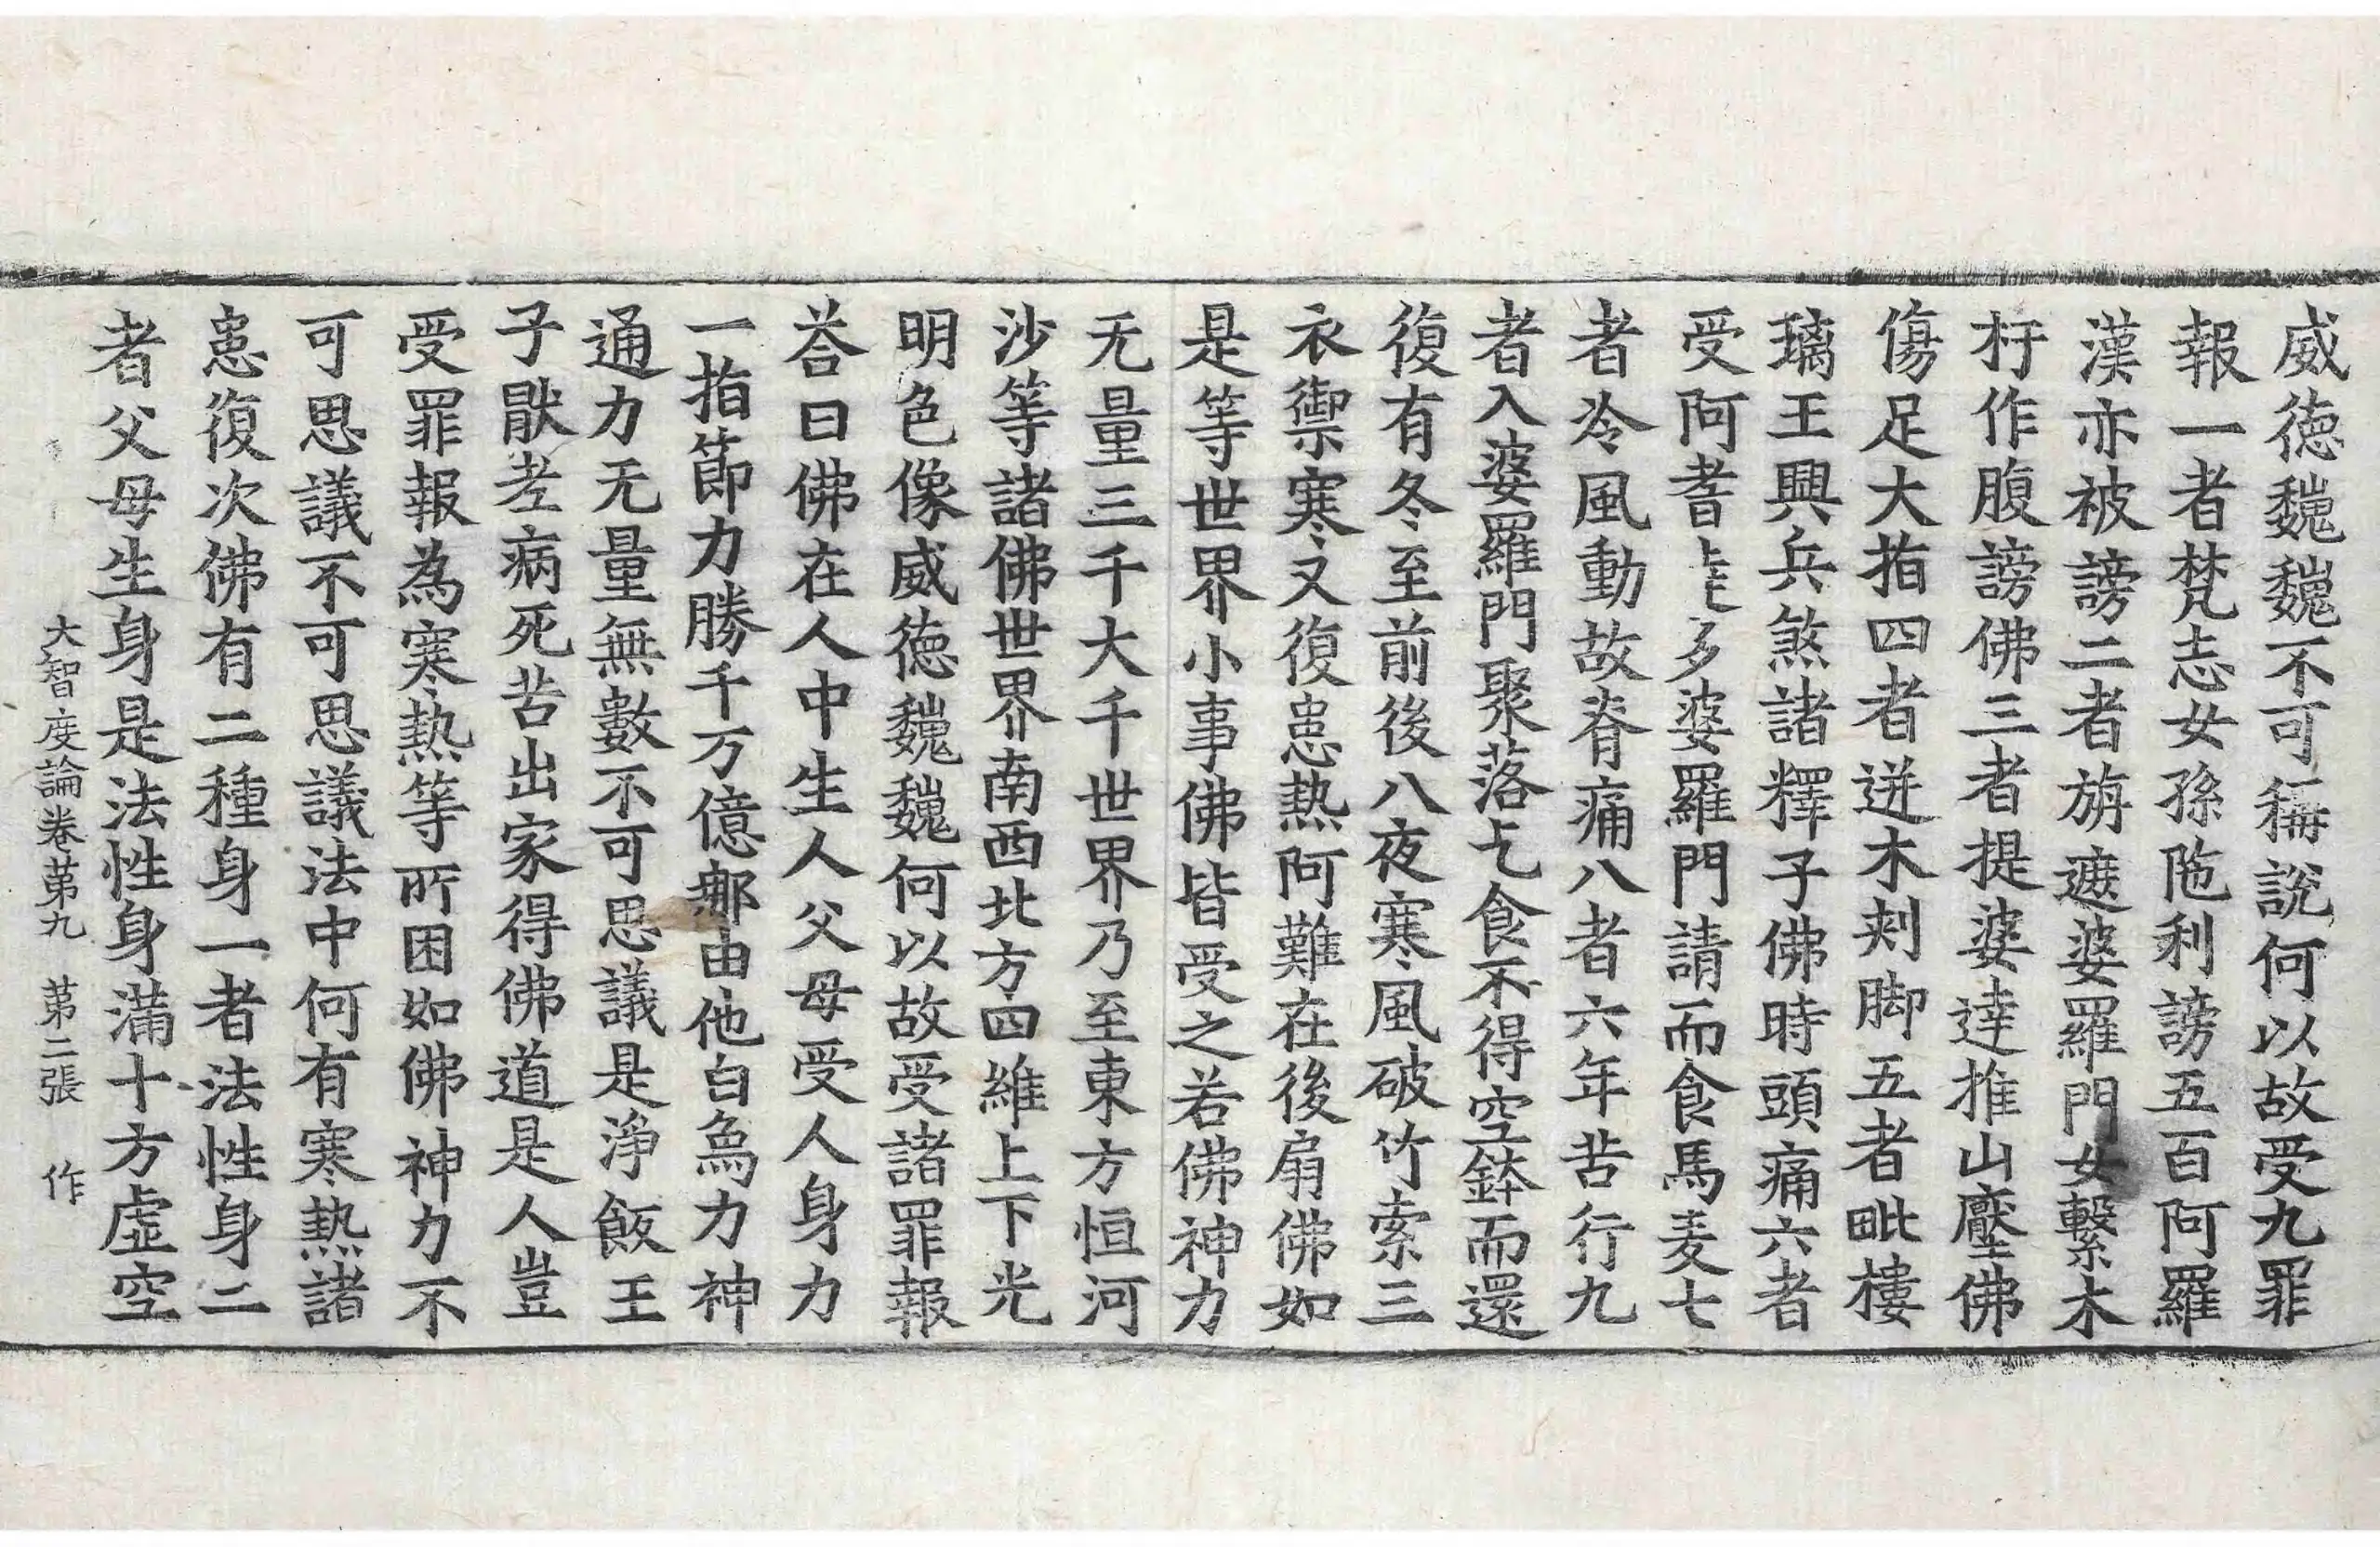 威徳巍巍不可稱說何以故受九罪
報一者梵志女孫陁利謗五百阿羅
漢亦被謗二者旃遮婆羅門女繫木
杅作腹謗佛三者提婆達推山壓佛
傷足大指四者迸木刾脚五者毗樓
璃王興兵煞諸釋子佛時頭痛六者
受阿耆達多婆羅門請而食馬麦七
者冷風動故脊痛八者六年苦行九
者入婆羅門聚落乞食不得空鉢而還
復有冬至前後八夜寒風破竹索三
衣禦寒又復患熱阿難在後扇佛如
是等世界小事佛皆受之若佛神力
无量三千大千世界乃至東方恒河
沙等諸佛世界南西北方四維上下光
明色像威徳巍巍何以故受諸罪報
荅曰佛在人中生人父母受人身力
一指節力勝千万億那由他白象力神
通力无量無數不可思議是淨飯王
子猒老病死苦出家得佛道是人豈
受罪報為寒熱等所困如佛神力不
可思議不可思議法中何有寒熱諸
患復次佛有二種身一者法性身二
者父母生身是法性身滿十方虛空
大智度論卷苐九 苐二張 作